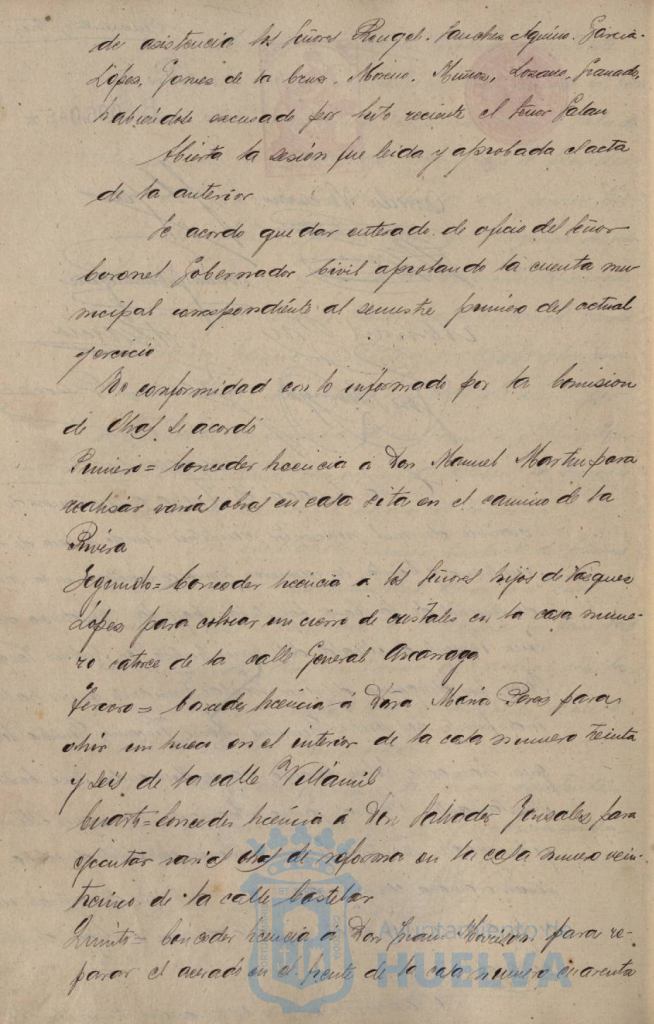 de asistencia los Señores Rengel. Sanchez Aquino. Garcia-
López, Gomez de la Cruz. Moreno. Muñoz, Lozano, Granado,
habiéndose escusado por luto reciente el Señor Galan
Abierta la sesión fue leida y aprobada el acta
de la anterior
Se acordo quedar enterado de oficio del Señor
Coronel Gobernador Civil aprobando la cuenta mu-
nicipal correspondiente al semestre primero del actual
ejercicio
De conformidad con lo informado por la Comision
de Obras se acordó
Primero = Conceder licencia á Don Manuel Martin para
realisar varias obras en casa sita en el camino de la
Rivera
Segundo = Conceder licencia a los Señores hijos de Vasquez
López para colocar un cierro de cristales en la casa nume-
ro catorce de la calle General Ascarraga
Tercero = Conceder licencia á Doña Maria Peres para
abrir un hueco en el interior de la casa numero treinta
y seis de la calle Villamil
Cuarto = Conceder licencia á Don Salvador Gonzales para
ejecutar varias obras de reforma en la casa numero vein-
ticinco de la calle Castelar
Quinto = Conceder licencia á Don Juan para re-
parar el acerado en el frente de la casa numero cuarenta
Ayuntamiento de
HUELVA